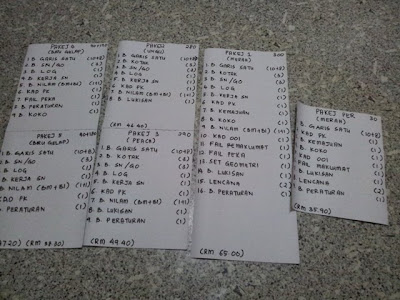 PAKEJ 6
(BIRU GELAP)
1. B. GARIS SATU (10+8)
2. B SN/GO (2)
3. B. LOG (1)
4. B. KERJA SN (1)
5. B. NILAM (BM+BI) (1+1)
6. KAD PK (1)
7. FAIL PEKA (1)
8. B PERATURAN (1)
9. B. KOKO (1)
PAKEJ 280
(UNGU)
1. B. GARIS SATU (10+8)
2. B KOTAK
3. B. SN/GO
4. B. LOG (1)
5. B KERJA SN (1)
6. KAD PK (1)
7. B NILAM (BM+BI) (1+1)
8. B. LUKISAN (1)
(RM 46.40)
PAKEJ 1
(MERAH)
1. B. GARIS SATU (10+8)
2. B KOTAK (2)
3. B. SN/GO (2)
4. B LOG (1)
5. B LUKISAN (1)
6. KAD PK (1)
7. B. KEMAJUAN (1)
8. B. KOKO (1)
9. B. NILAM (BM+BI) (1+1)
10. KAD 001 (1)
11. FAIL PEMAKLUMAT (1)
12. FAIL PEKA (1)
13. SET GEOMETRI (1)
B. LUKISAN (1)
LENCANA (2)
16. B PERATURAN (1)
(RM 65.00)
PAKEJ PER 30
(MERAH)
B GARIS SATU (10+8)
KAD PK (1)
B. KEMAJUAN (1)
B. KOKO (1)
KAD 001 (1)
FAIL MAKLUMAT (1)
B. LUKISAN (1)
LENCANA (2)
B PERATURAN (1)
(RM 38.90)
PAKEJ
(BIRU GELAP)
B. GARIS SATU (10+8)
B. SN/GO (2)
B. LOG (1)
B KERJA SN (1)
B NILAM (BM+BI) (1+1)
KAD PK (1)
B. LUKISAN (1)
B PERATURAN (1)
PAKEJ 3
(PERAK)
1. B. GARIS SATU (10+8)
2. B KOTAK
3. B. SN/GO
4. B. LOG (1)
5. B KERJA SN (1)
6. KAD PK (1)
7. B. NILAM (BM+BI) (1+1)
8. B. LUKISAN (1)
9. B. PERATURAN (1)
(RM 49.40)